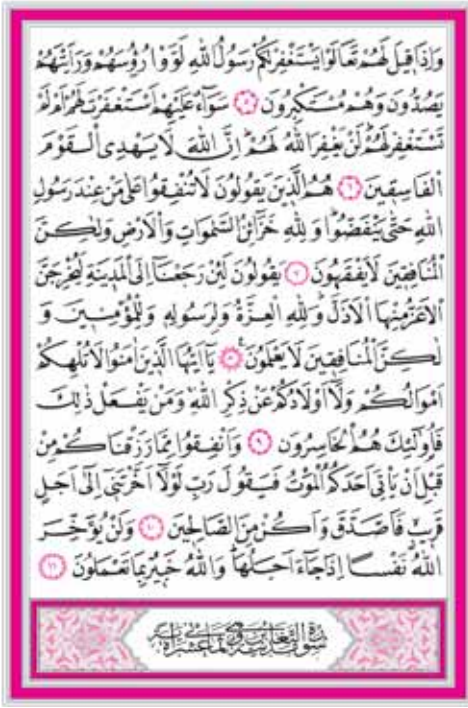 وَاِذَا قٖيلَ لَهُمْ تَعَالَوْا يَسْتَغْفِرْ لَكُمْ رَسُولُ اللّٰهِ لَوَّوْا رُؤُ۫سَهُمْ وَرَاَيْتَهُمْ
يَصُدُّونَ وَهُمْ مُسْتَكْبِرُونَ ﴿٥﴾ سَوَٓاءٌ عَلَيْهِمْ اَسْتَغْفَرْتَ لَهُمْ اَمْ لَمْ
تَسْتَغْفِرْ لَهُمْ لَنْ يَغْفِرَ اللّٰهُ لَهُمْ اِنَّ اللّٰهَ لَا يَهْدِي الْقَوْمَ
الْفَاسِقٖينَ ﴿٦﴾ هُمُ الَّذٖينَ يَقُولُونَ لَا تُنْفِقُوا عَلٰى مَنْ عِنْدَ رَسُولِ
اللّٰهِ حَتّٰى يَنْفَضُّوا وَلِلّٰهِ خَزَٓائِنُ السَّمٰوَاتِ وَالْاَرْضِ وَلٰكِنَّ
الْمُنَافِقٖينَ لَا يَفْقَهُونَ ﴿٧﴾ يَقُولُونَ لَئِنْ رَجَعْنَٓا اِلَى الْمَدٖينَةِ لَيُخْرِجَنَّ
الْاَعَزُّ مِنْهَا الْاَذَلَّ وَلِلّٰهِ الْعِزَّةُ وَلِرَسُولِهٖ وَلِلْمُؤْمِنٖينَ وَ
لٰكِنَّ الْمُنَافِقٖينَ لَا يَعْلَمُونَ ﴿٨﴾ يَٓا اَيُّهَا الَّذٖينَ اٰمَنُوا لَا تُلْهِكُمْ
اَمْوَالُكُمْ وَلَٓا اَوْلَادُكُمْ عَنْ ذِكْرِ اللّٰهِ وَمَنْ يَفْعَلْ ذٰلِكَ
فَاُولٰٓئِكَ هُمُ الْخَاسِرُونَ ﴿٩﴾ وَاَنْفِقُوا مِمَّا رَزَقْنَاكُمْ مِنْ
قَبْلِ اَنْ يَأْتِيَ اَحَدَكُمُ الْمَوْتُ فَيَقُولَ رَبِّ لَوْلَٓا اَخَّرْتَنٖٓي اِلٰٓى اَجَلٍ
قَرٖيبٍ فَاَصَّدَّقَ وَاَكُنْ مِنَ الصَّالِحٖينَ ﴿١٠﴾ وَلَنْ يُؤَخِّرَ
اللّٰهُ نَفْسًا اِذَا جَٓاءَ اَجَلُهَا وَاللّٰهُ خَبٖيرٌ بِمَا تَعْمَلُونَ ﴿١١﴾
سورة التغابن مدنية وهي ثماني عشرة آية